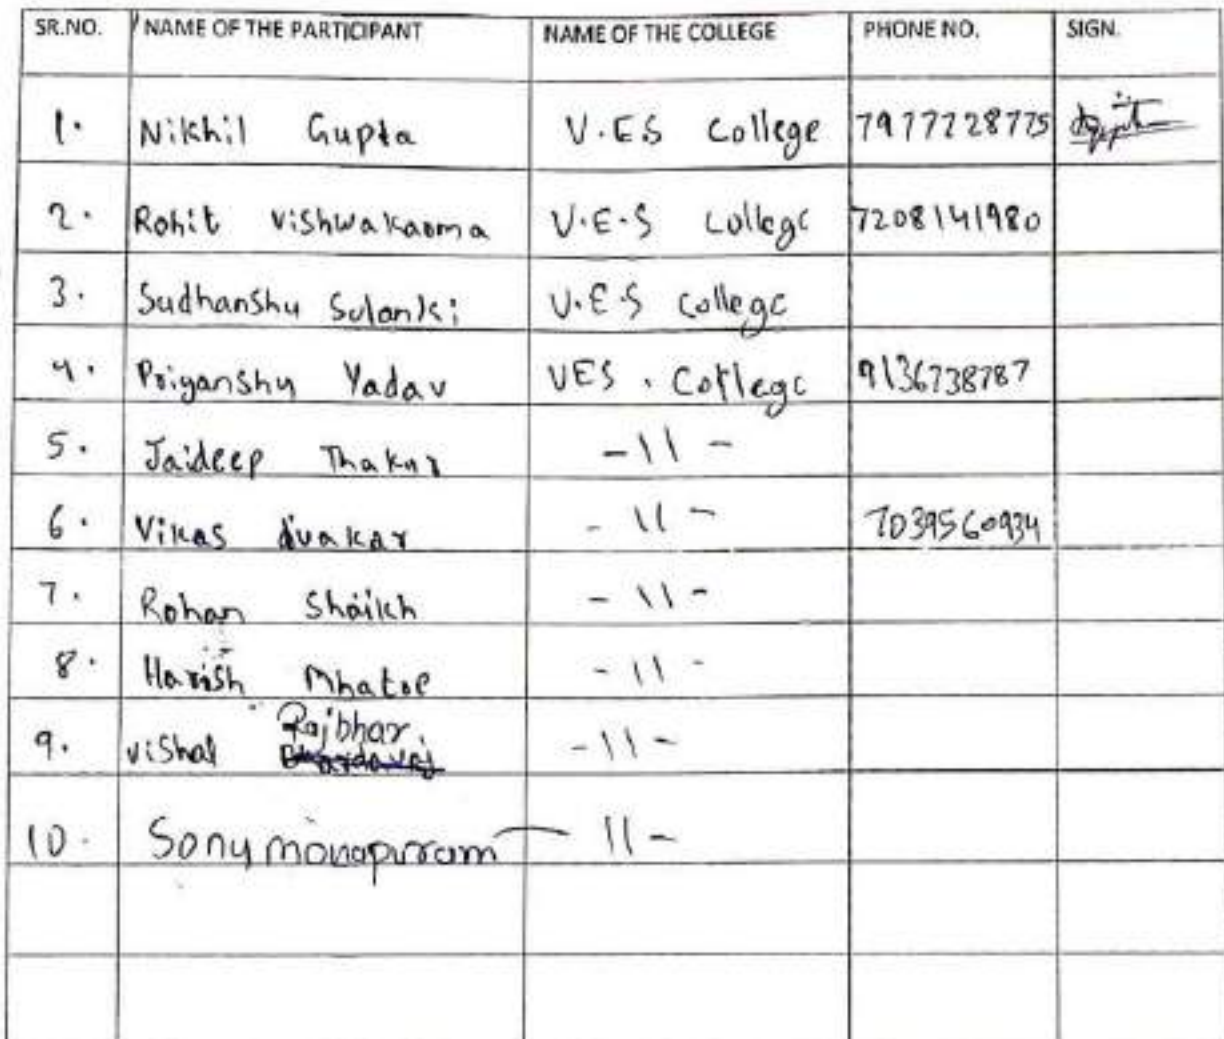 SR.NO. NAME OF THE PARTICIPANT NAME OF THE COLLEGE PHONE NO. SIGN.
1. Nikhil Gupta V.ES College 7977728775
2. Rohit Vishwakarma V.E.S College 7208141980
3. Sudhanshu Solanki V.E.S College
4. Priyanshu Yadav VES. College 9136738787
5. Jaideep Thakur -11-
6. Vikas divakar -11- 7039560934
7. Rohan Shaikh -11-
8. Harish Mhatre -11-
9. Vishal Rajbhar -11-
10. Sony -11-